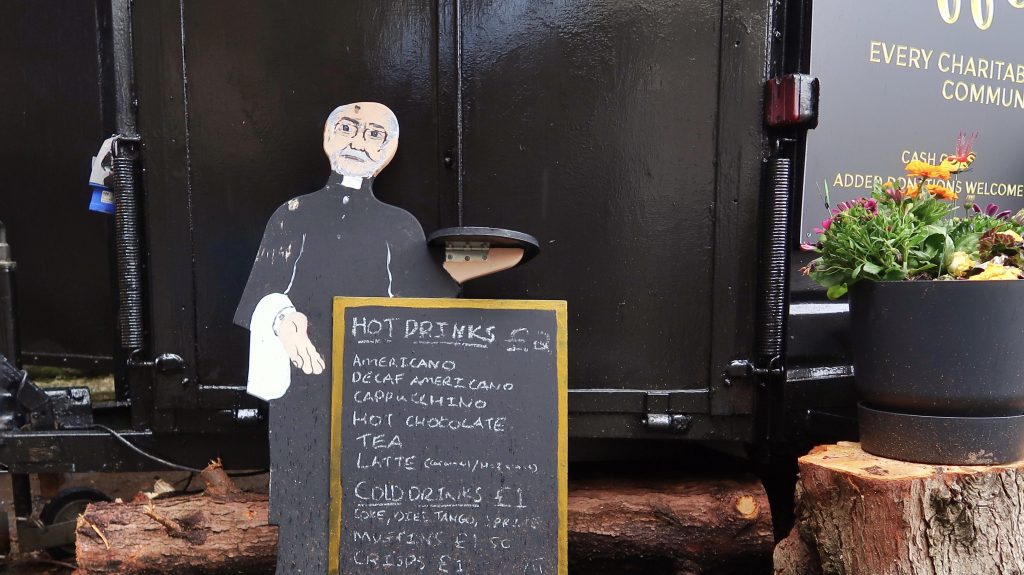 EVERY CHARITAB
COMMUN
CASH
ADDED DONATIONS WELCOME
HOT DRINKS £
AMERICANO
DECAF AMERICANO
CAPPUCCHINO
HOT CHOCOLATE
TEA
LATTE
COLD DRINKS £1
COKE, DIET, TANGO, SPRITE
MUFFINS £1.50
CRISPS £1